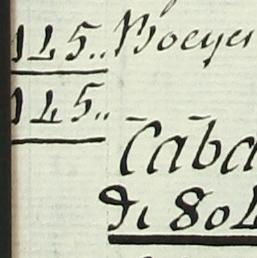 145.. Boeyer
145..
Caba
de 804